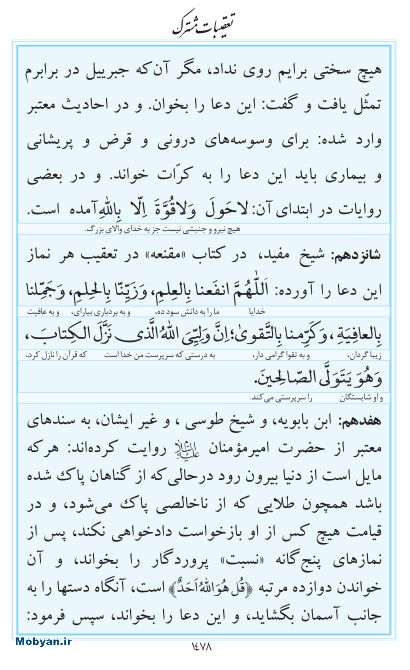 تعقیبات مشترک
هیچ سختی برایم روی نداد، مگر آن‌که جبرییل در برابرم
تمثّل یافت و گفت: این دعا را بخوان. و در احادیث معتبر
وارد شده: برای وسوسه‌های درونی و قرض و پریشانی
و بیماری باید این دعا را به کرّات خواند. و در بعضی
روایات در ابتدای آن: لاحَولَ وَلاقُوَّةَ اِلّا بِاللهِ آمده است.
هیچ نیرو و جنبشی نیست جز به خدای والای بزرگ.
شانزدهم: شیخ مفید، در کتاب «مقنعه» در تعقیب هر نماز
این دعا را آورده: اَللّٰهُمَّ انفَعنا بِالعِلمِ، وَزَیِّنّا بِالحِلمِ، وَجَمِّلنا
خدایا ما را به دانش سود ده، و به بردباری بیارای، و به عافیت
بِالعافِیَةِ، وَکَرِّمنا بِالتَّقویٰ؛ اِنَّ وَلِیِّیَ اللهُ الَّذی نَزَّلَ الکِتابَ،
زیبا گردان، و به تقوا گرامی دار، به درستی که سرپرست من خدا است که قرآن را نازل کرد،
وَهُوَ یَتَوَلَّی الصّالِحینَ.
و او شایستگان را سرپرستی می‌کند.
هفدهم: ابن بابویه، و شیخ طوسی، و غیر ایشان، به سندهای
معتبر از حضرت امیرمؤمنان علیه‌السلام روایت کرده‌اند: هرکه
مایل است از دنیا بیرون رود درحالی‌که از گناهان پاک شده
باشد همچون طلایی که از ناخالصی پاک می‌شود، و در
قیامت هیچ کس از او بازخواست دادخواهی نکند، پس از
نمازهای پنج‌گانه «نسبت» پروردگار را بخواند، و آن
خواندن دوازده مرتبه ﴿قُل هُوَ اللهُ اَحَدٌ﴾ است، آنگاه دستها را به
جانب آسمان بگشاید، و این دعا را بخواند، سپس فرمود:
۱۴۷۸
Mobyan.ir